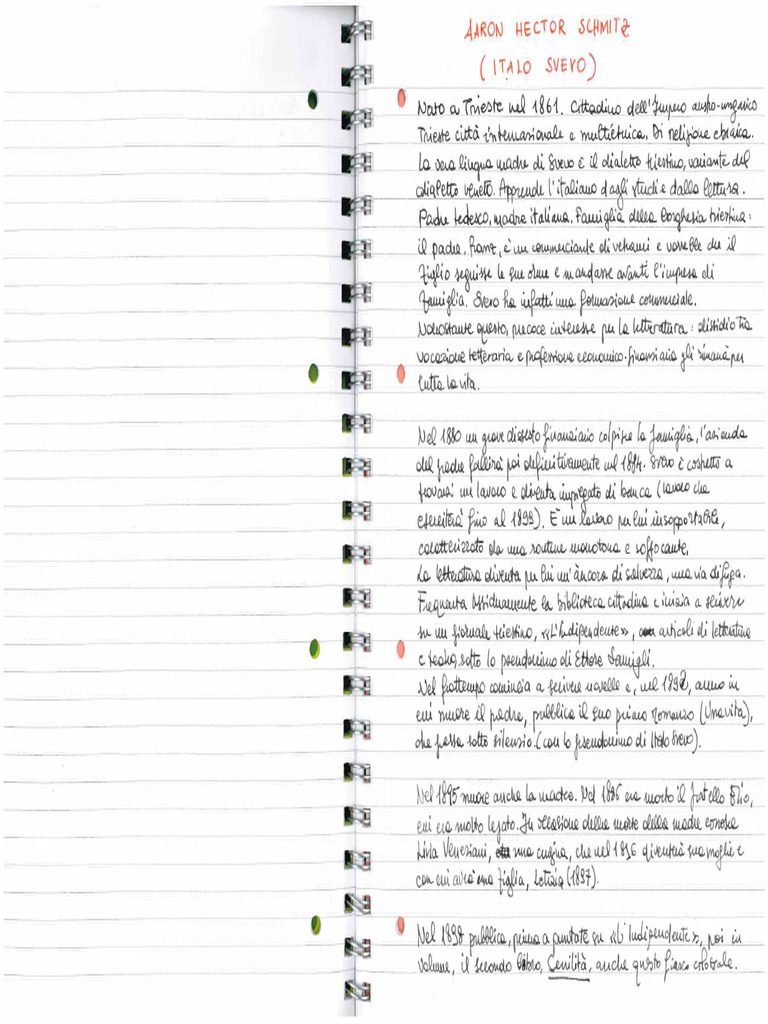 AARON HECTOR SCHMITZ
(ITALO SVEVO)
Nato a Trieste nel 1861. Cittadino dell'Impero austro-ungarico
Trieste città internazionale e multietnica. Di religione ebraica.
La vera lingua madre di Svevo è il dialetto triestino, variante del
dialetto veneto. Apprende l'italiano dagli studi e dalla lettura.
Padre tedesco, madre italiana. Famiglia della borghesia triestina:
il padre, Franz, è un commerciante di vetrami e vorrebbe che il
figlio seguisse le sue orme e mandasse avanti l'impresa di
famiglia. Svevo ha infatti una formazione commerciale.
Nonostante questo, precoce interesse per la letteratura: dissidio tra
vocazione letteraria e professione economico-finanziaria gli rimarrà per
tutta la vita.
Nel 1880 un grave dissesto finanziario colpisce la famiglia, l'azienda
del padre fallirà poi definitivamente nel 1884. Svevo è costretto a
trovarsi un lavoro e diventa impiegato di banca (lavoro che
eserciterà fino al 1899). È un lavoro per lui insopportabile,
caratterizzato da una routine monotona e soffocante.
La letteratura diventa per lui un'àncora di salvezza, una via di fuga.
Frequenta assiduamente la biblioteca cittadina e inizia a scrivere
su un giornale triestino, «L'Indipendente», articoli di letteratura
e teatro, sotto lo pseudonimo di Ettore Samigli.
Nel frattempo comincia a scrivere novelle e, nel 1892, anno in
cui muore il padre, pubblica il suo primo romanzo (Una vita),
che passa sotto silenzio. (con lo pseudonimo di Italo Svevo).
Nel 1895 muore anche la madre. Nel 1886 era morto il fratello Elio,
cui era molto legato. In occasione della morte della madre conosce
Livia Veneziani, una cugina, che nel 1896 diventerà sua moglie e
con cui avrà una figlia, Letizia (1897).
Nel 1898 pubblica, prima a puntate su «L'Indipendente», poi in
volume, il secondo libro, Senilità, anche questo fiasco colossale.